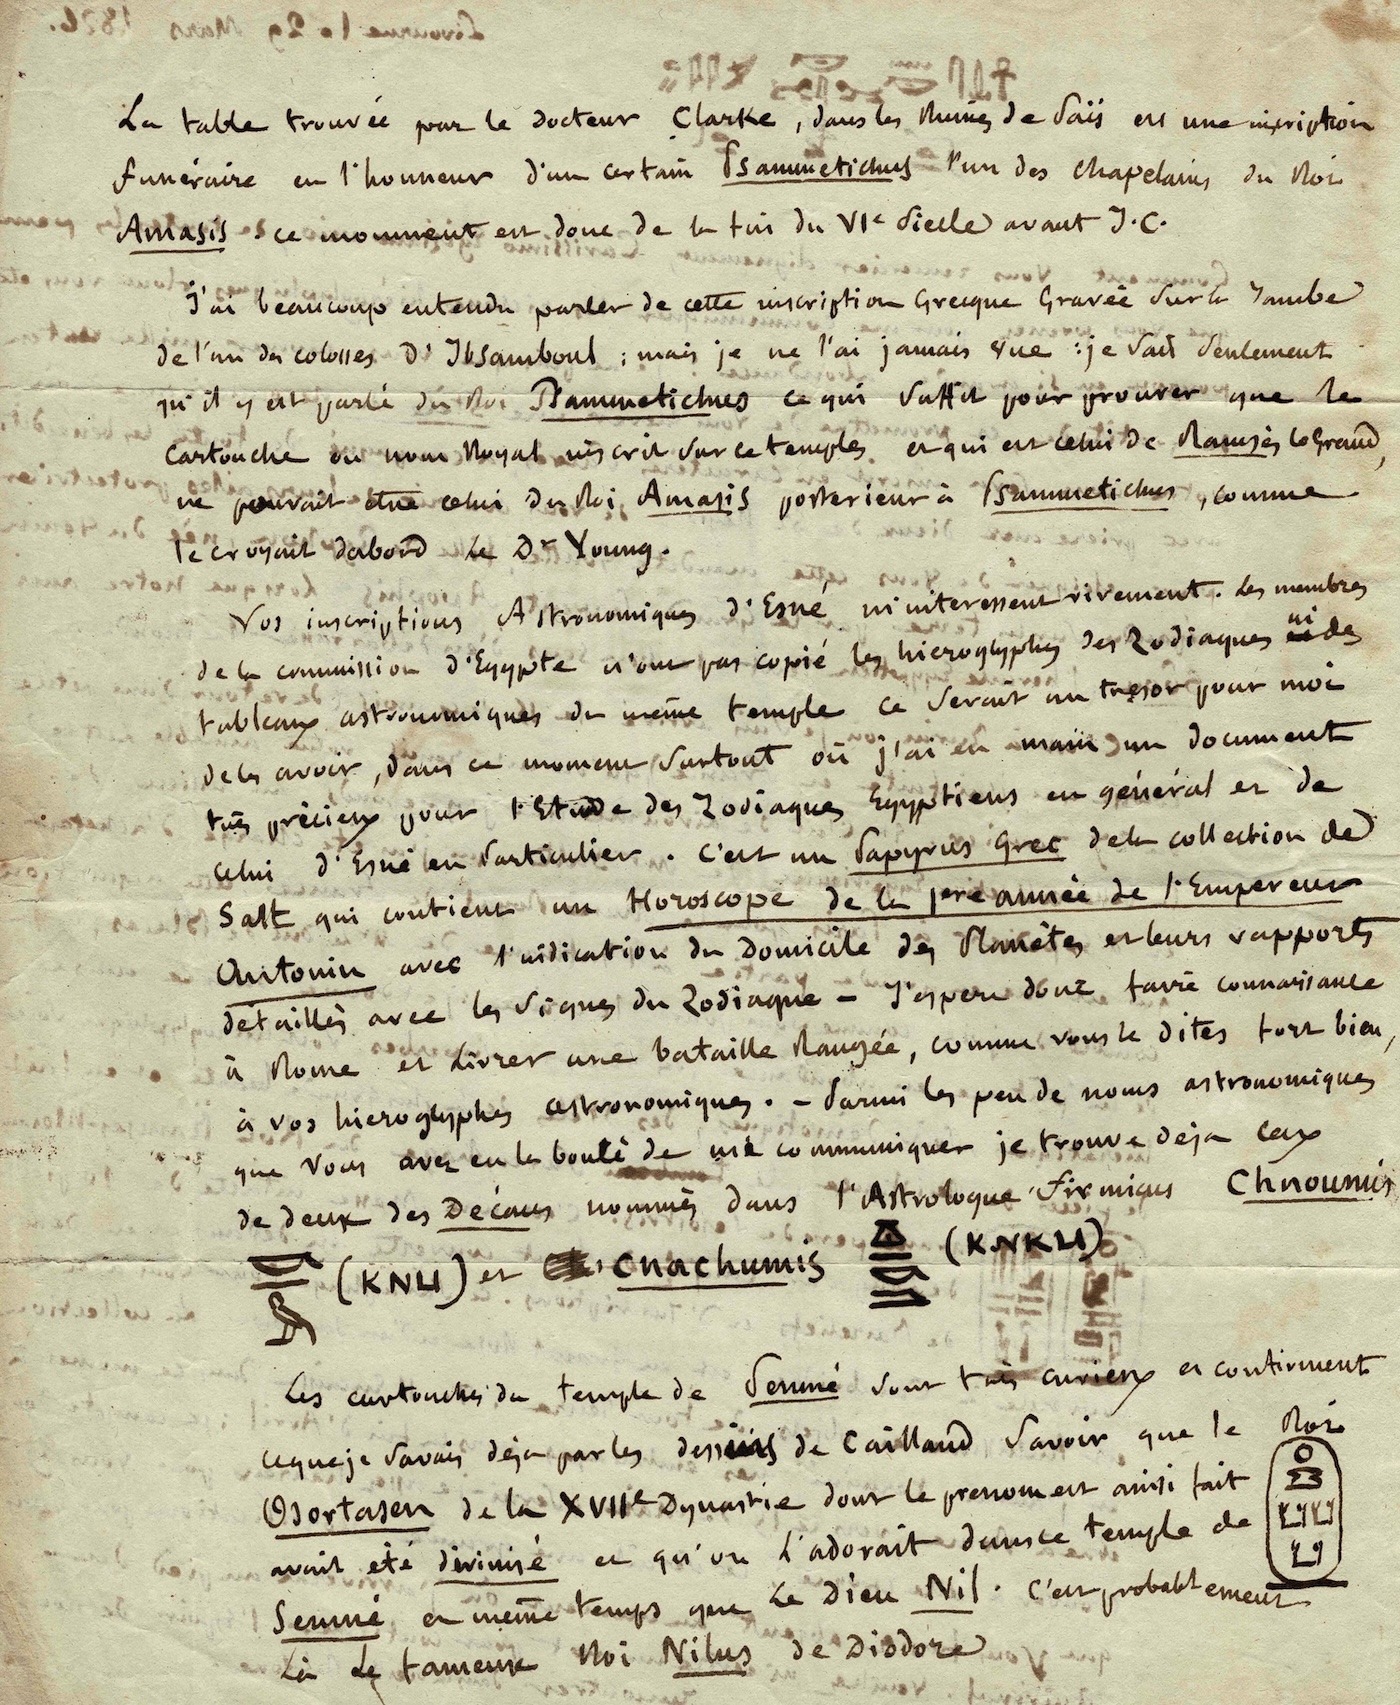 La table trouvée par le Docteur Clarke, dans les Ruines de Saïs est une inscription
funéraire en l'honneur d'un certain Psammetichus l'un des chapelains du Roi
Amasis. ce monument est donc de la fin du VIe Siecle avant J.C.
J'ai beaucoup entendu parler de cette inscription Grecque Gravée sur la Jambe
de l'un des colosses d'Ibsamboul ; mais je ne l'ai jamais vue : je sais seulement
qu'il y est parlé du Roi Psammetichus ce qui suffit pour prouver que le
Cartouche ou nom Royal inscrit sur ce temples et qui est celui de Ramsès le Grand,
ne pouvait être celui du Roi Amasis posterieur à Psammetichus, comme
le croyait dabord le Dr Young.
Vos inscriptions Astronomiques d'Esné m'interessent vivement. Les membres
de la commission d'Egypte n'ont pas copié les hieroglyphes des Zodiaques ni des
tableaux astronomiques du même temple ce serait un tresor pour moi
de les avoir, dans ce moment surtout où j'ai en main un document
très précieux pour l'Etude des Zodiaques Egyptiens en général et de
celui d'Esné en particulier. C'est un Papyrus Grec de la collection de
Salt qui contient un Horoscope de la 1ere année de l'Empereur
Antonin avec l'indication du Domicile des Planètes et leurs rapports
détaillés avec les signes du Zodiaque – J'espere donc faire connaissance
à Rome et Livrer une bataille Rangée, comme vous le dites fort bien,
à vos hieroglyphes astronomiques. – Parmi les peu de noms astronomiques
que vous avez eu la bonté de me communiquer je trouve deja ceux
de deux des Décans nommés dans l'Astrologue Firmicus Chnoumis
(KNU) et Cnachumis (KNKU)
Les cartouches du temple de Semné sont très curieux et confirment
ce que je savais déja par les dessins de Caillaud savoir que le Roi
Osortasen de la XVIIe Dynastie dont le prenom est ainsi fait
avait été divinisé et qu'on l'adorait dans ce temple de
Semné en même temps que le Dieu Nil. C'est probablement
là le fameux Roi Nilus de Diodore